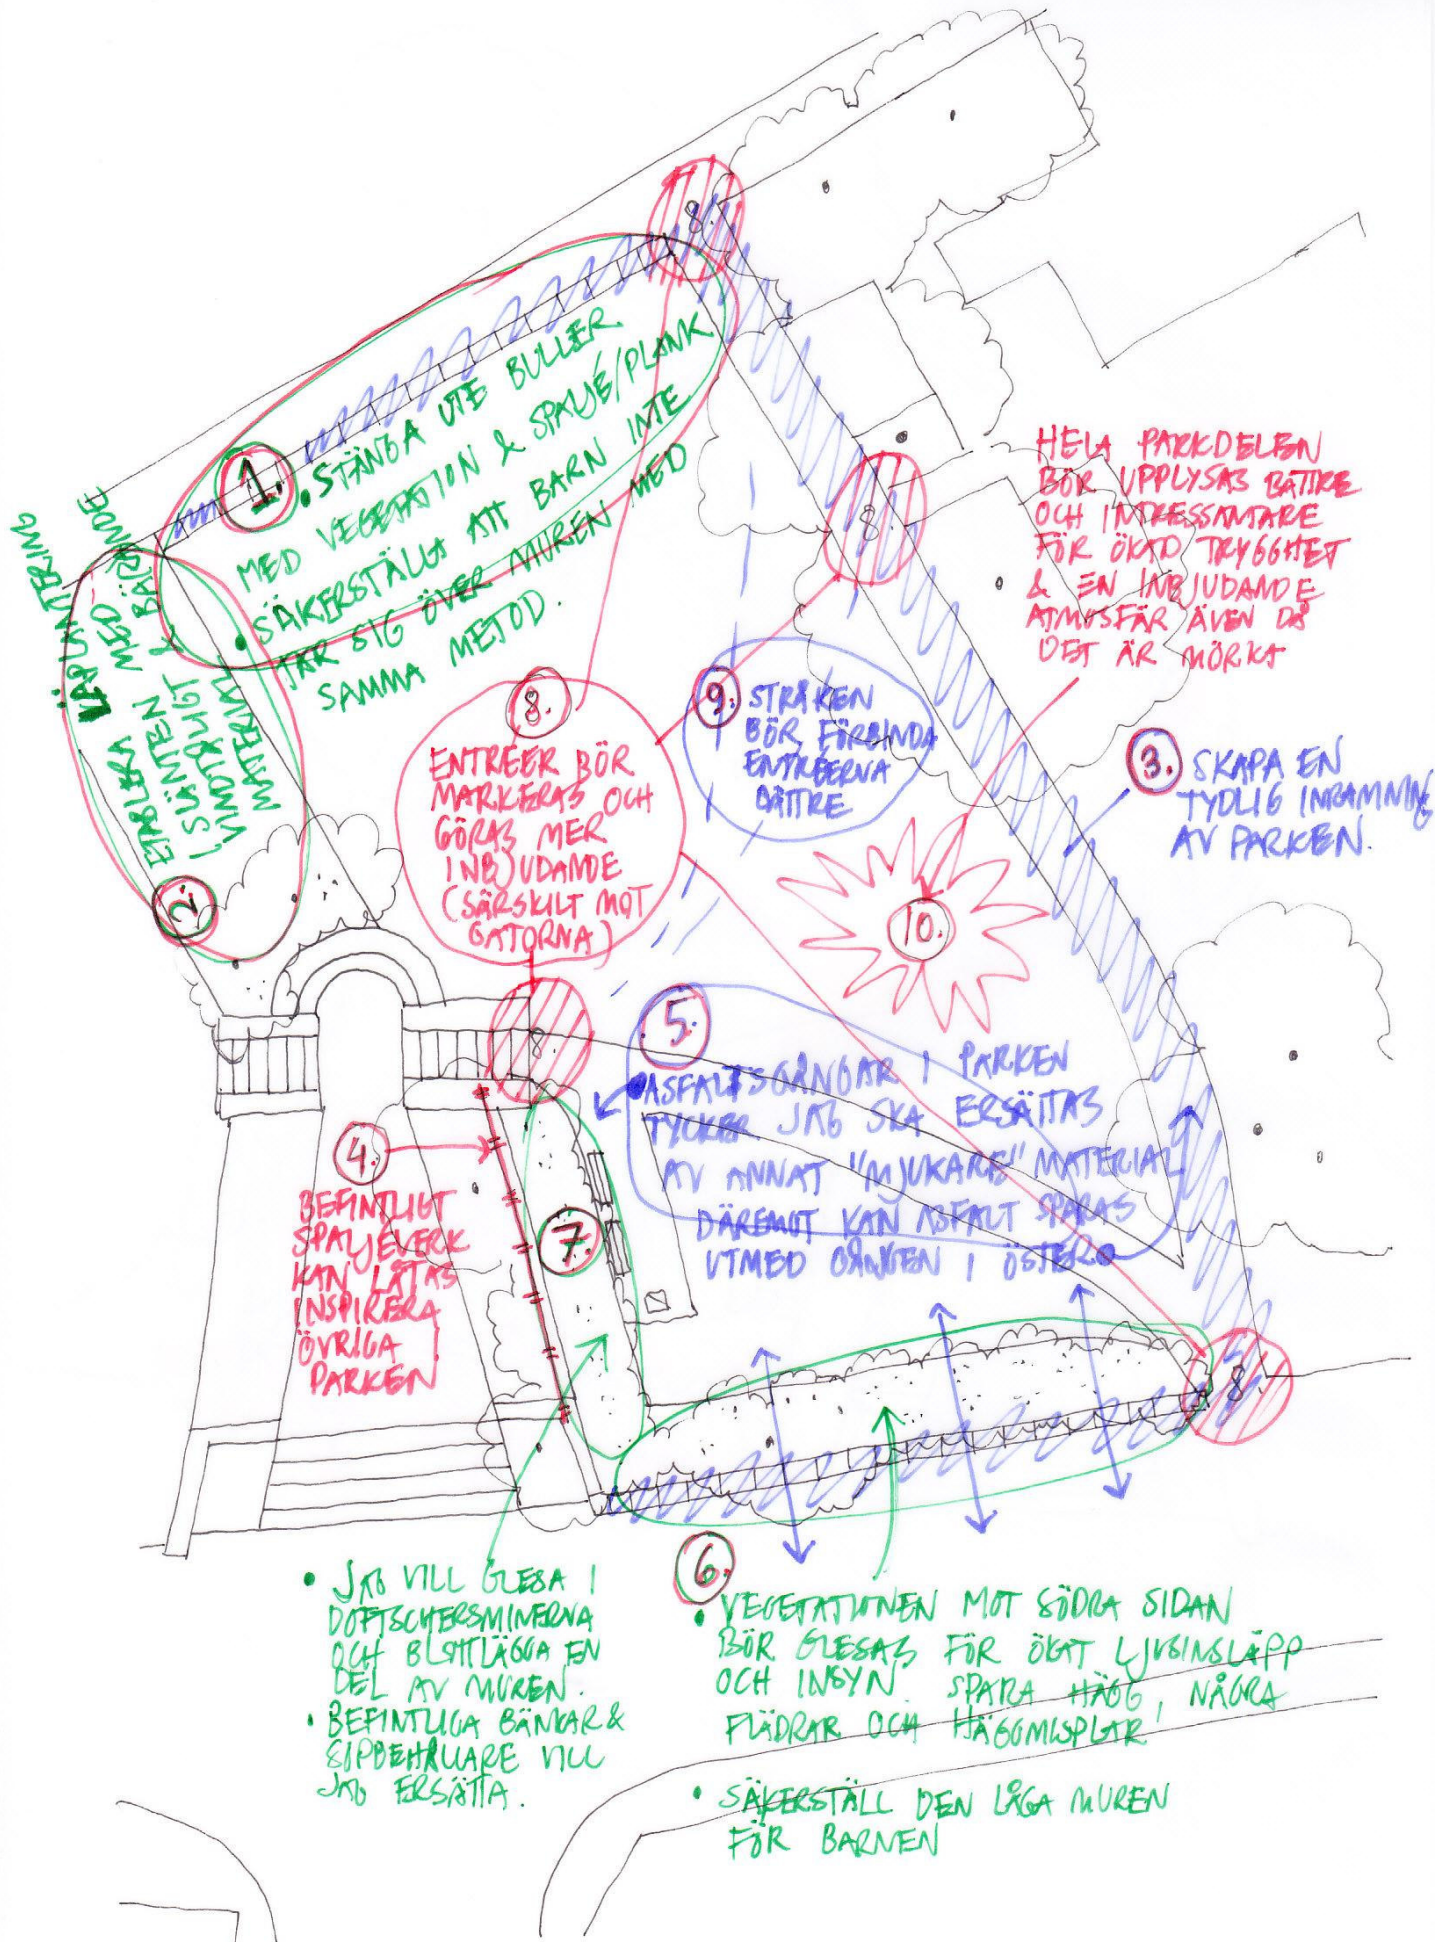 8.
1.
• STÄNGA UTE BULLER
MED VEGETATION & SPALJÉ/PLANK
• SÄKERSTÄLLA ATT BARN INTE
TAR SIG ÖVER MUREN MED
SAMMA METOD.
2.
ETABLERA LÄPLANTERING
I SLÄNTEN MED
VINDTÅLIGT & BÄRANDE
MATERIAL
8.
HELA PARKDELEN
BÖR UPPLYSAS BÄTTRE
OCH INTRESSANTARE
FÖR ÖKAD TRYGGHET
& EN INBJUDANDE
ATMOSFÄR ÄVEN DÅ
DET ÄR MÖRKT
8.
ENTRÉER BÖR
MARKERAS OCH
GÖRAS MER
INBJUDANDE
(SÄRSKILT MOT
GATORNA)
9.
STRÅKEN
BÖR FÖRBINDA
ENTRÉERNA
BÄTTRE
3.
SKAPA EN
TYDLIG INRAMNING
AV PARKEN.
10.
8.
5.
• ASFALTSGÅNGAR I PARKEN
TYCKER JAG SKA ERSÄTTAS
AV ANNAT "MJUKARE" MATERIAL
DÄREMOT KAN ASFALT SPARAS
UTMED GÅNGEN I ÖSTER
4.
BEFINTLIGT
SPALJÉVERK
KAN LÅTAS
INSPIRERA
ÖVRIGA
PARKEN
7.
8.
• JAG VILL GLESA I
DOFTSCHERSMINERNA
OCH BLOTTLÄGGA EN
DEL AV MUREN.
• BEFINTLIGA BÄNKAR &
SOPBEHÅLLARE VILL
JAG ERSÄTTA.
6.
• VEGETATIONEN MOT SÖDRA SIDAN
BÖR GLESAS FÖR ÖKAT LJUSINSLÄPP
OCH INSYN. SPARA HÄGG, NÅGRA
FLÄDRAR OCH HÄGGMISPLAR
• SÄKERSTÄLL DEN LÅGA MUREN
FÖR BARNEN